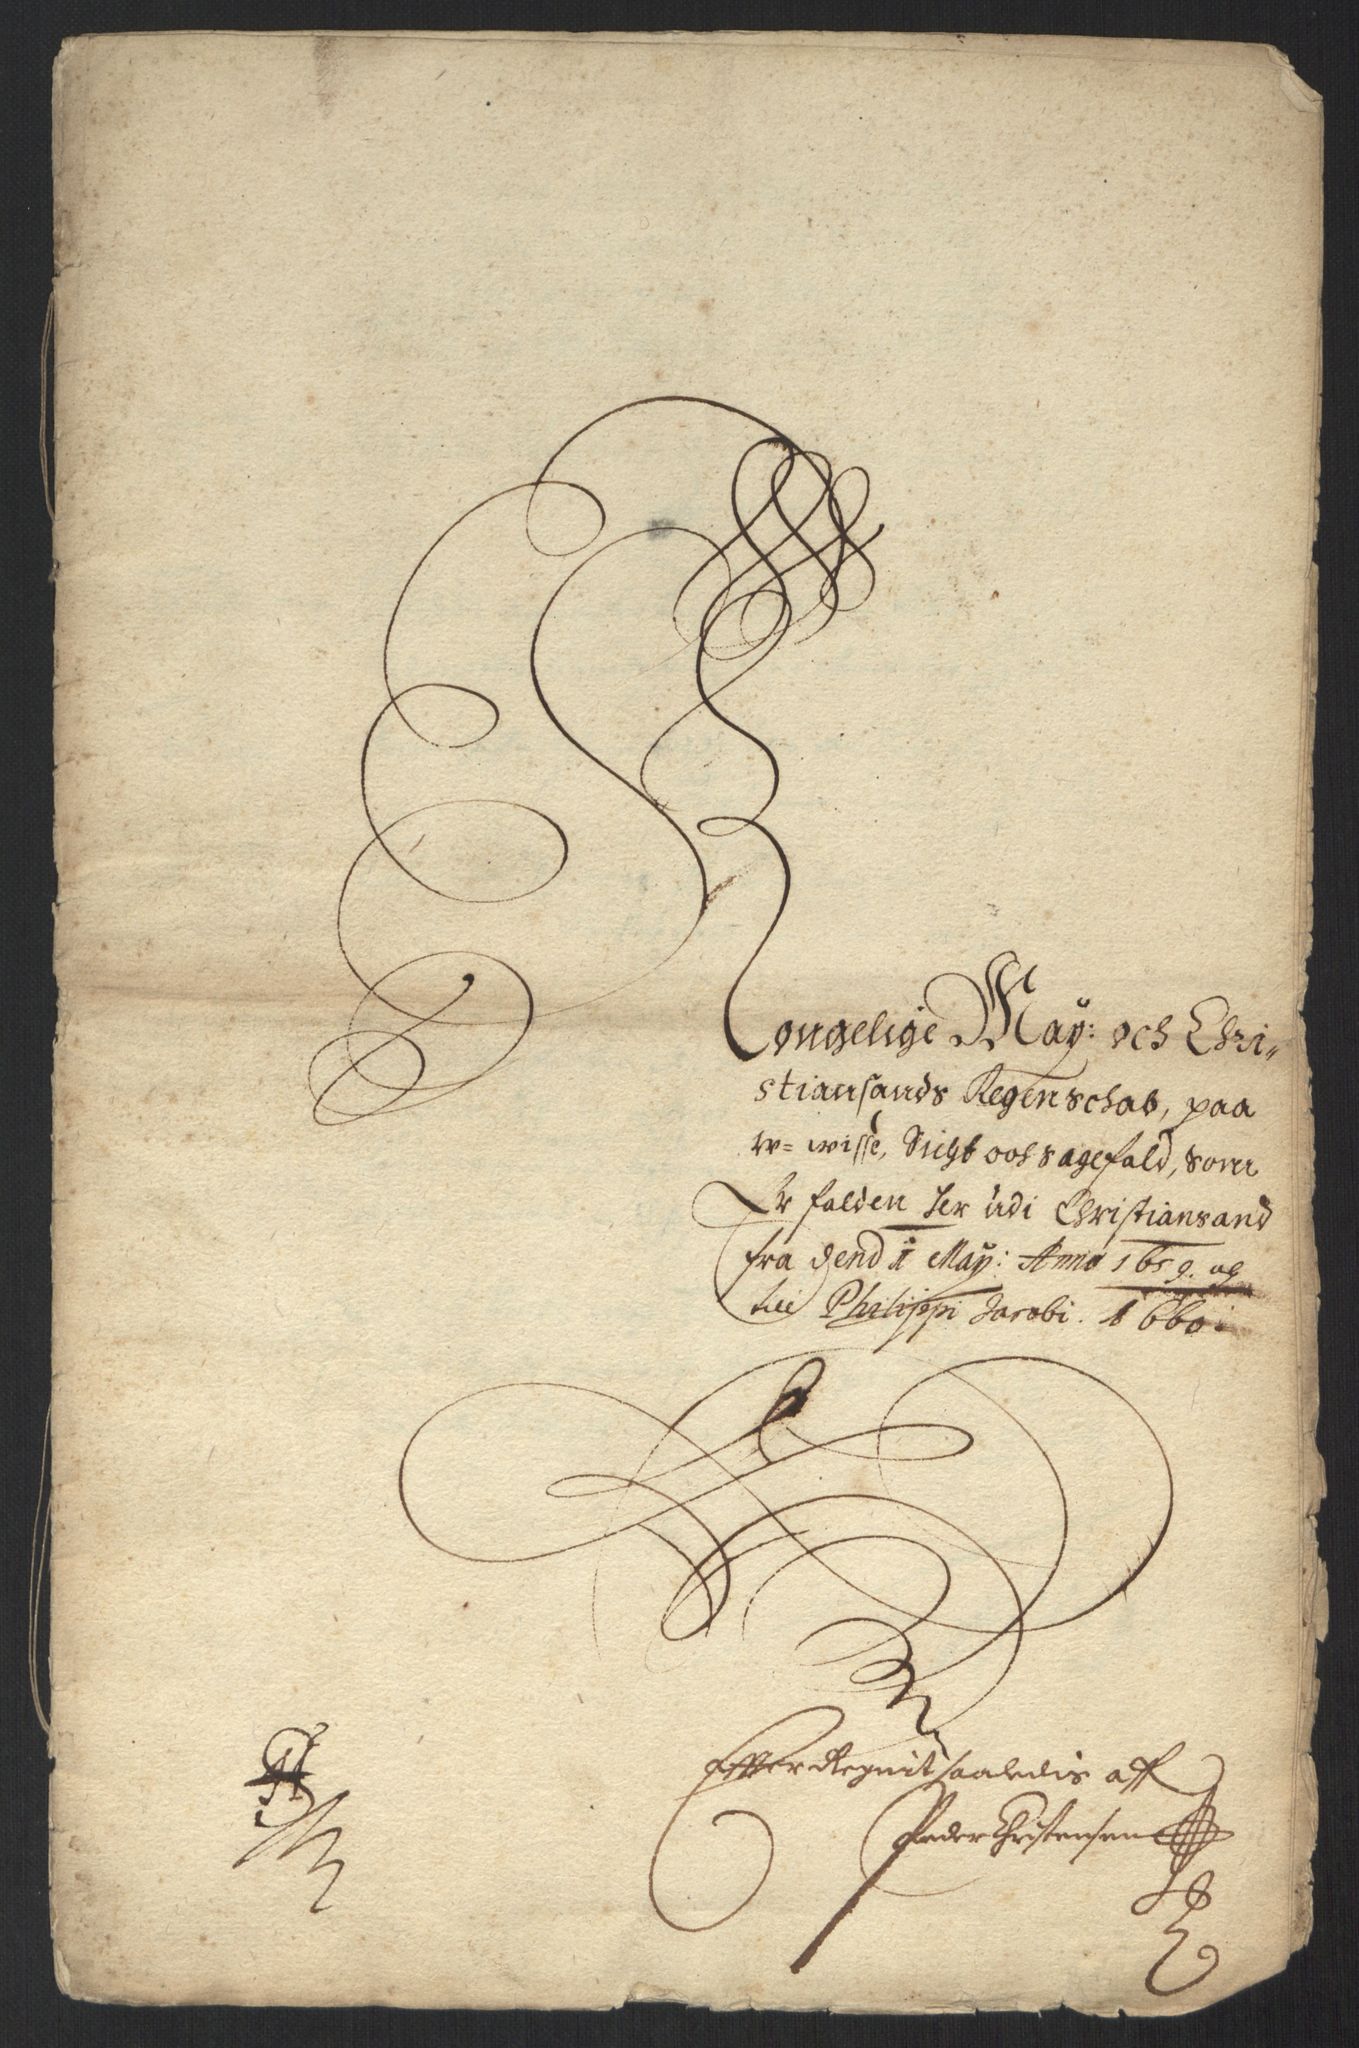 Kongelige May: och Chri=
stiansands Regenschab, paa
w= wisse, Sicht och sagefald, som
Er falden her udi Christiansand
fra dend 1 May: Anno 1659. og
till Philippi Jacobi. 1660.
Effter Regnit saaledis aff
Peder Christensen